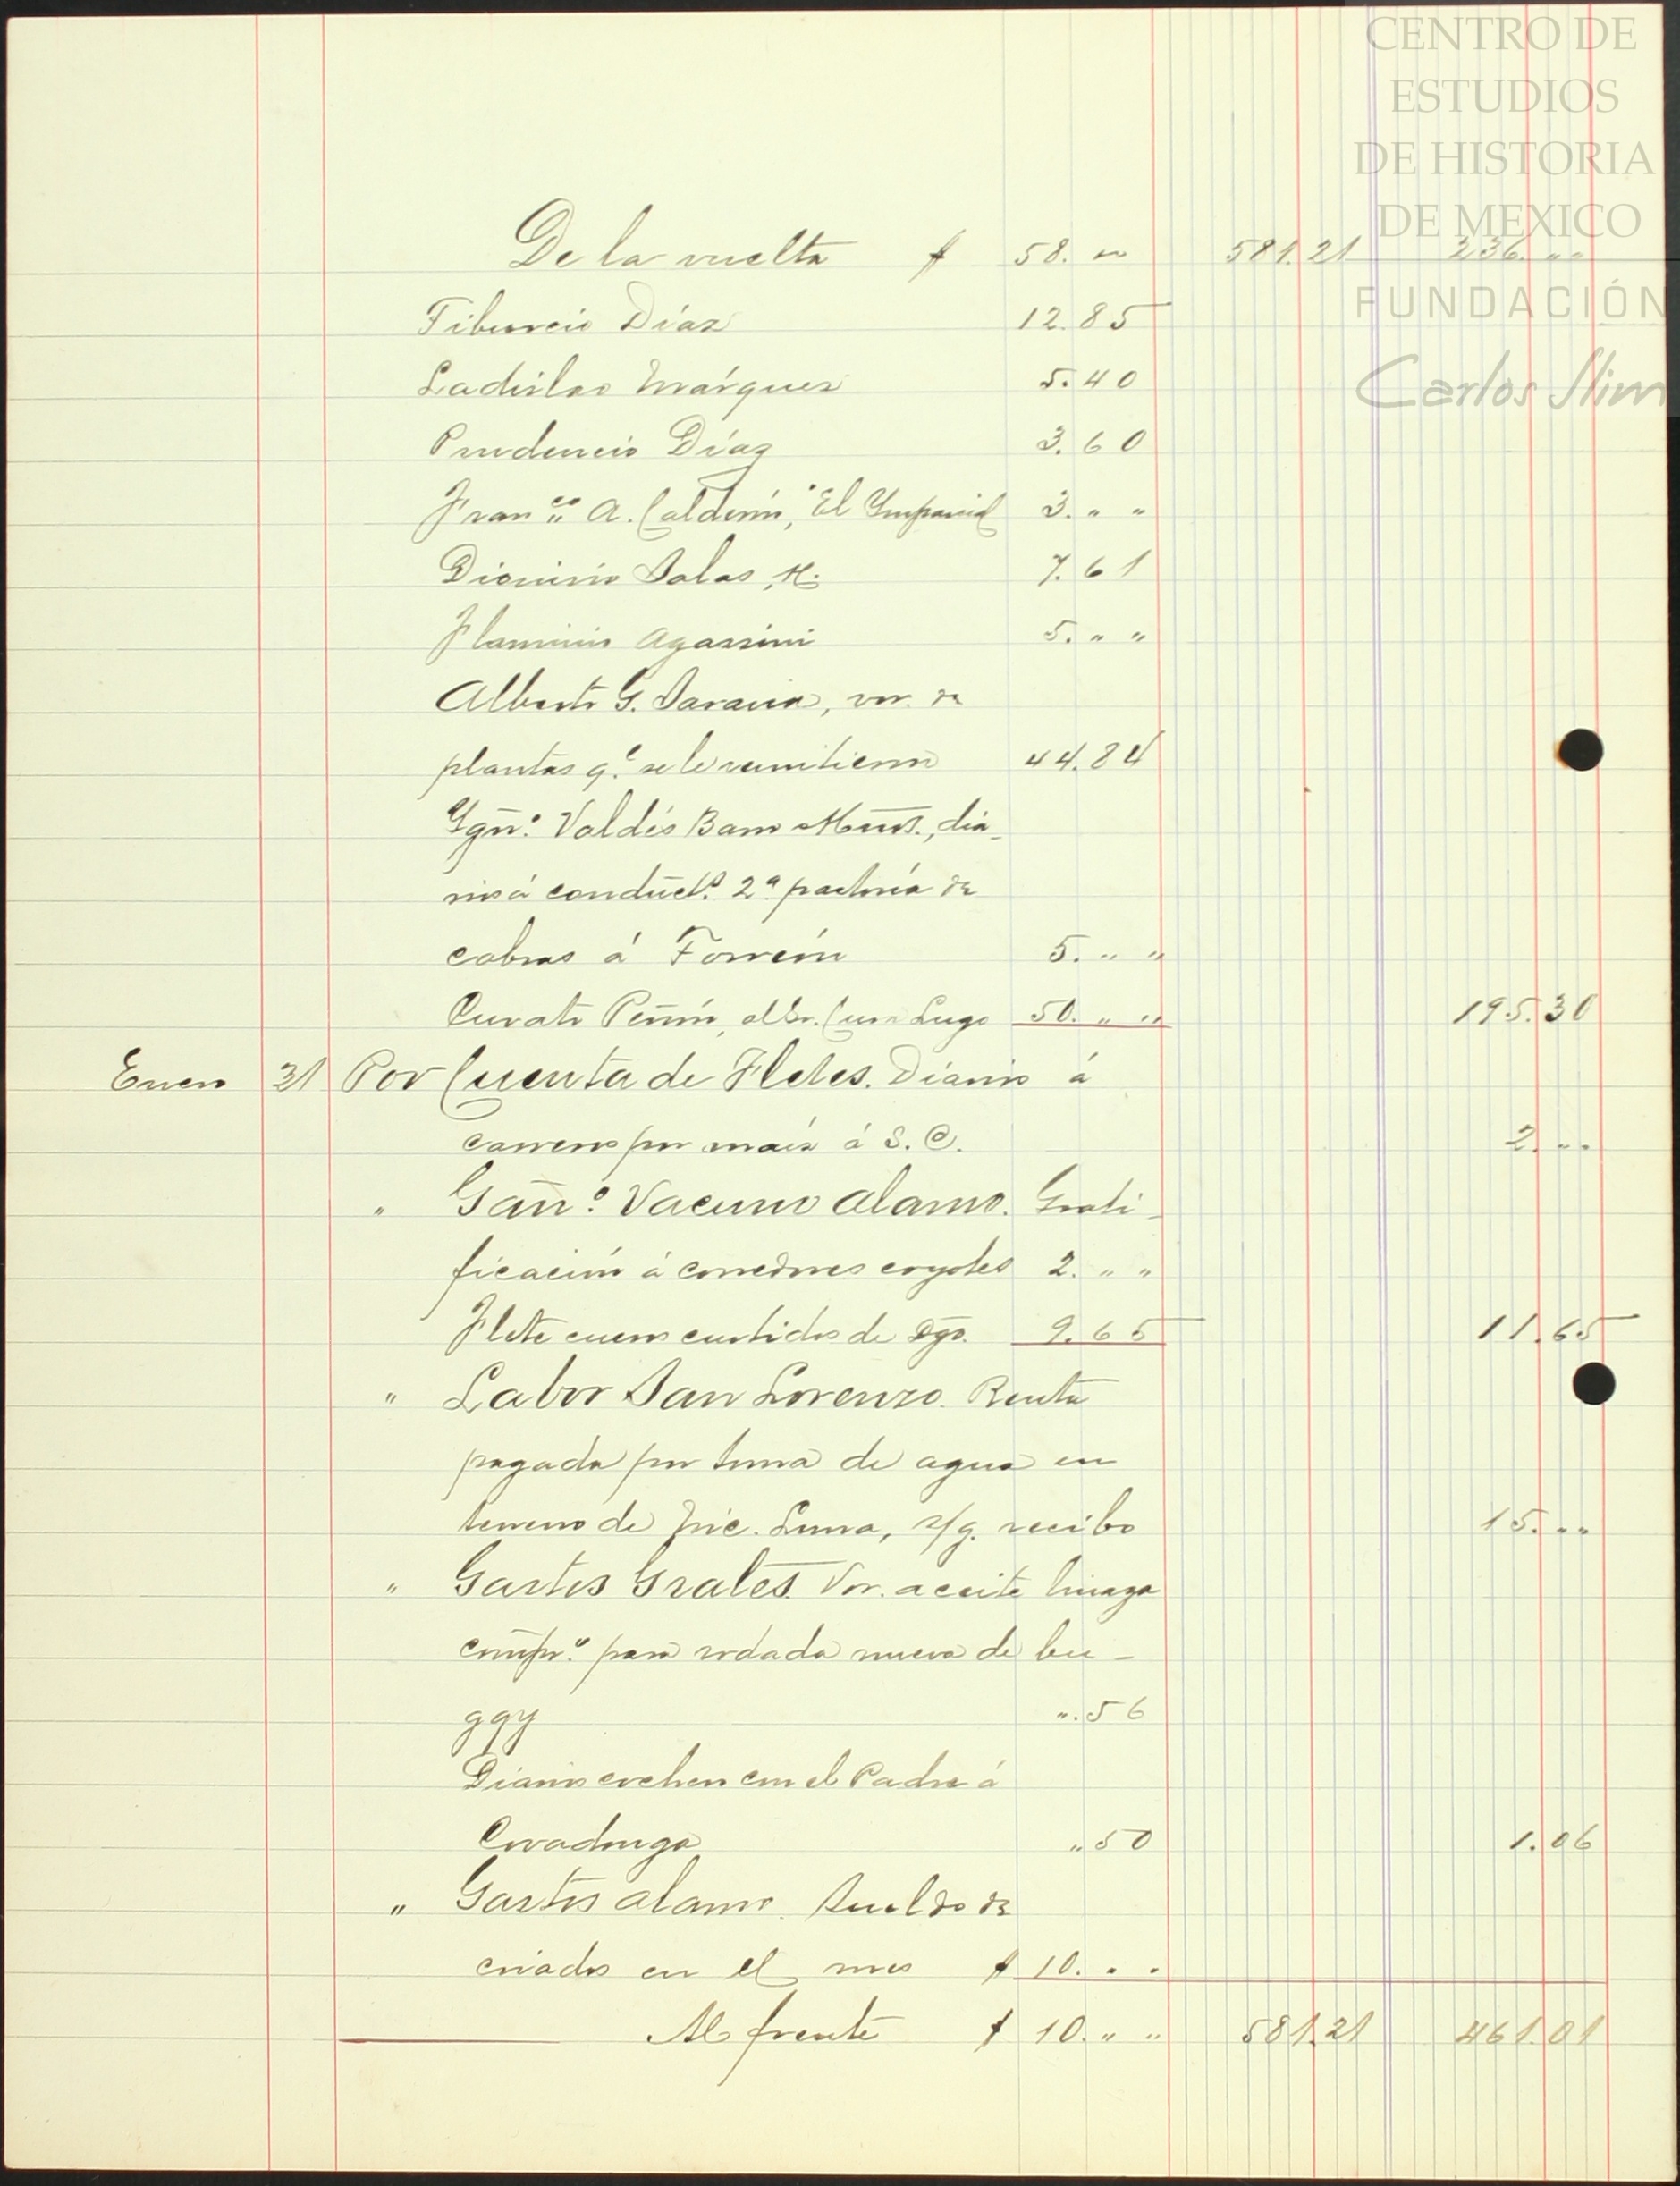 CENTRO DE
ESTUDIOS
DE HISTORIA
DE MEXICO
FUNDACIÓN
Carlos Slim
De la vuelta $ 58. " 581.21 236. " "
Tiburcio Díaz 12.85
Ladislao Márquez 5.40
Prudencio Díaz 3.60
Fran.co A. Calderón, "El Imparcial 3. " "
Dionisio Salas, H. 7.61
Flaminio Agazzini 5. " "
Alberto G. Saravia, vor. de
plantas q.e se le remitieron 44.84
Ign.o Valdés Bam , dia-
rio á conduct.s 2a pastoría de
cabras á Torreón 5. " "
Curato Peñón, al Sr. Cura Lugo 50. " " 195.30
Enero 31 Por Cuenta de Fletes. Diario á
carrero por maíz á S. C. 2. " "
" Gan.o Vacuno Alamo. Grati-
ficación á corredores coyotes 2. " "
Flete cueros curtidos de Dgo. 9.65 11.65
" Labor San Lorenzo. Renta
pagada por toma de agua en
terreno de Nic. Luna, s/g. recibo 15. " "
" Gastos Grales. Vor. aceite linaza
compr.o para rodada nueva de bu-
ggy ". 56
Diario cochero con el Padre á
Covadonga " 50 1.06
" Gastos Alamo. Sueldo de
criados en el mes $ 10. " "
Al frente $ 10. " " 581.21 461.01